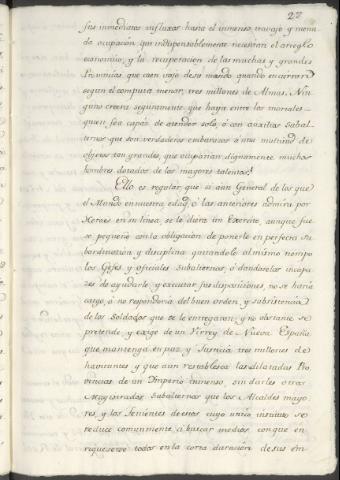 27
sus inmediatos influxos hasta el inmenso trabajo y menu-
da ocupacion que indispensablemente necesitan el arreglo
economico, y la recuperacion de las muchas y grandes
Provincias que caen vajo de su mando, quando encierran
segun el computo menor, tres millones de Almas. Nin-
guno creera seguramente que haya entre los mortales
quien sea capaz de atender solo, ó con auxilios subal-
ternos que son verdaderos embarazos á una multitud de
objetos tan grande, que ocuparian dignamente muchos
hombres dotados de los mayores talentos.
Ello es regular, que si á un General de los que
el Mundo en nuestra edad, ó las anteriores admiro por
Heroes en su linea, se le diera un Exercito, aunque fue-
se pequeño con la obligacion de ponerle en perfecta su-
bordinacion y disciplina quitandole al mismo tiempo
los Gefes, y oficiales subalternos, ó dandoselos incapa-
ces de ayudarle, y executar sus disposiciones, no se haria
cargo, ó no responderia del buen orden, y subsistencia
de los Soldados que se le entregaron; y no obstante se
pretende, y exige de un Virrey de Nueva España
que mantenga en paz, y Justicia tres millones de
havitantes y que aun restablesca las dilatadas Pro-
vincias de un Imperio inmenso, sin darles otros
Magistrados subalternos que los Alcaldes mayo-
res, y los Tenientes de estos cuyo unico instituto se
reduce comunmente á buscar medios con que en-
riquecerse todos en la corta duracion de sus em-